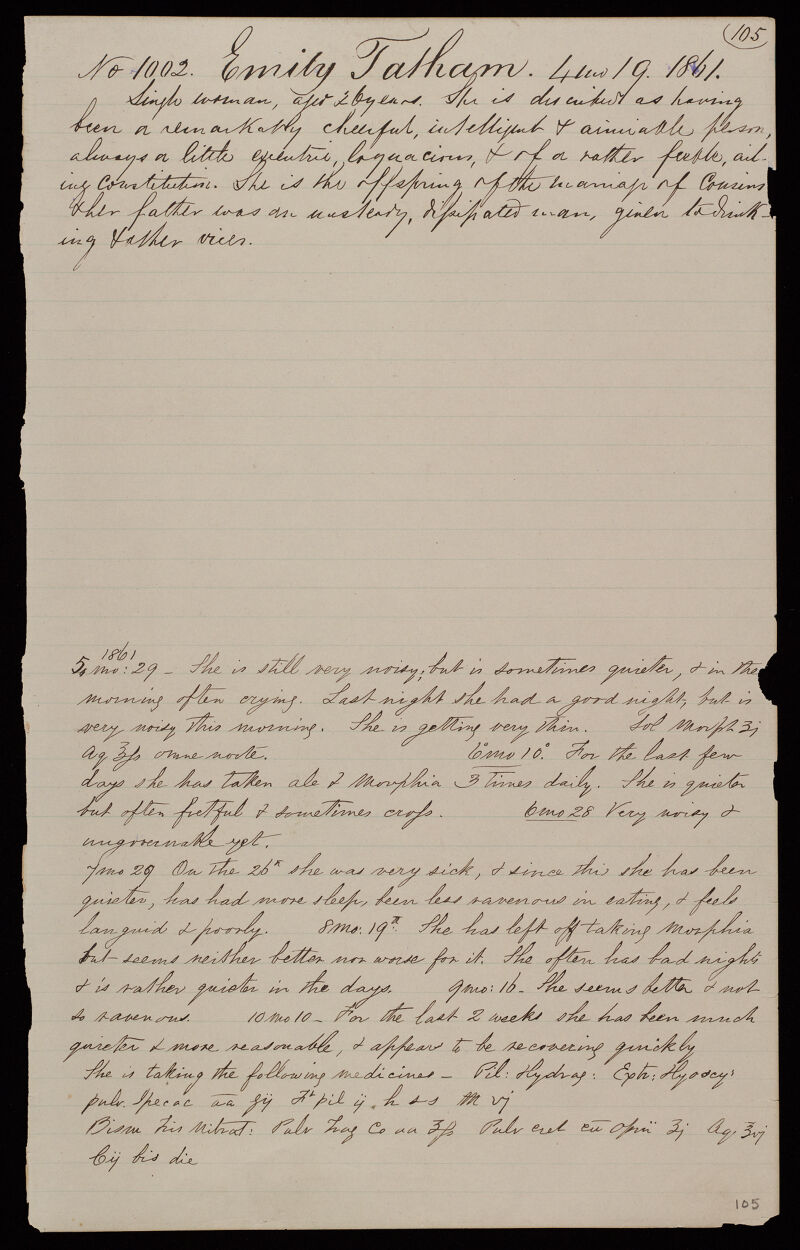 105
No 1002. Emily Tatham. 4 mo 19. 1861.
Single woman, aged 26 years. She is described as having
been a remarkably cheerful, intelligent & aimiable person,
always a little excentric, loquacious, & of a rather feeble, ail-
ing constitution. She is the offspring of the marriage of Cousins
& her father was an unsteady, dissipated man, given to drink-
ing & other vices.
1861
5 mo: 29 - She is still very noisy; but is sometimes quieter, & in the
morning often crying. Last night she had a good night, but is
very noisy this morning. She is getting very thin. Sol Morph ʒj
Aq ℥fs omne nocte. 6 mo 10. For the last few
days she has taken ale & Morphia 3 times daily. She is quieter
but often fretful & sometimes cross. 6 mo 28 Very noisy &
ungovernable yet.
7 mo 29 On the 26th she was very sick, & since this she has been
quieter, has had more sleep, been less ravenous in eating, & feels
languid & poorly. 8 mo: 19th. She has left off taking Morphia
but seems neither better nor worse for it. She often has bad nights
& is rather quieter in the days. 9 mo: 16 - She seems better & not
so ravenous. 10 mo 10 - For the last 2 weeks she has been much
quieter & more reasonable, & appears to be recovering quickly
She is taking the following medicines - Pil: Hydrag: Extr: Hyoscy:
pulv. Ipecac āā gij Ft pil ij h s s M vj
Bism Tris Nitrat: Pulv Trag Co āā ʒfs Pulv cret cū opii ʒj Aq. ℥vj
Cij bis die
105